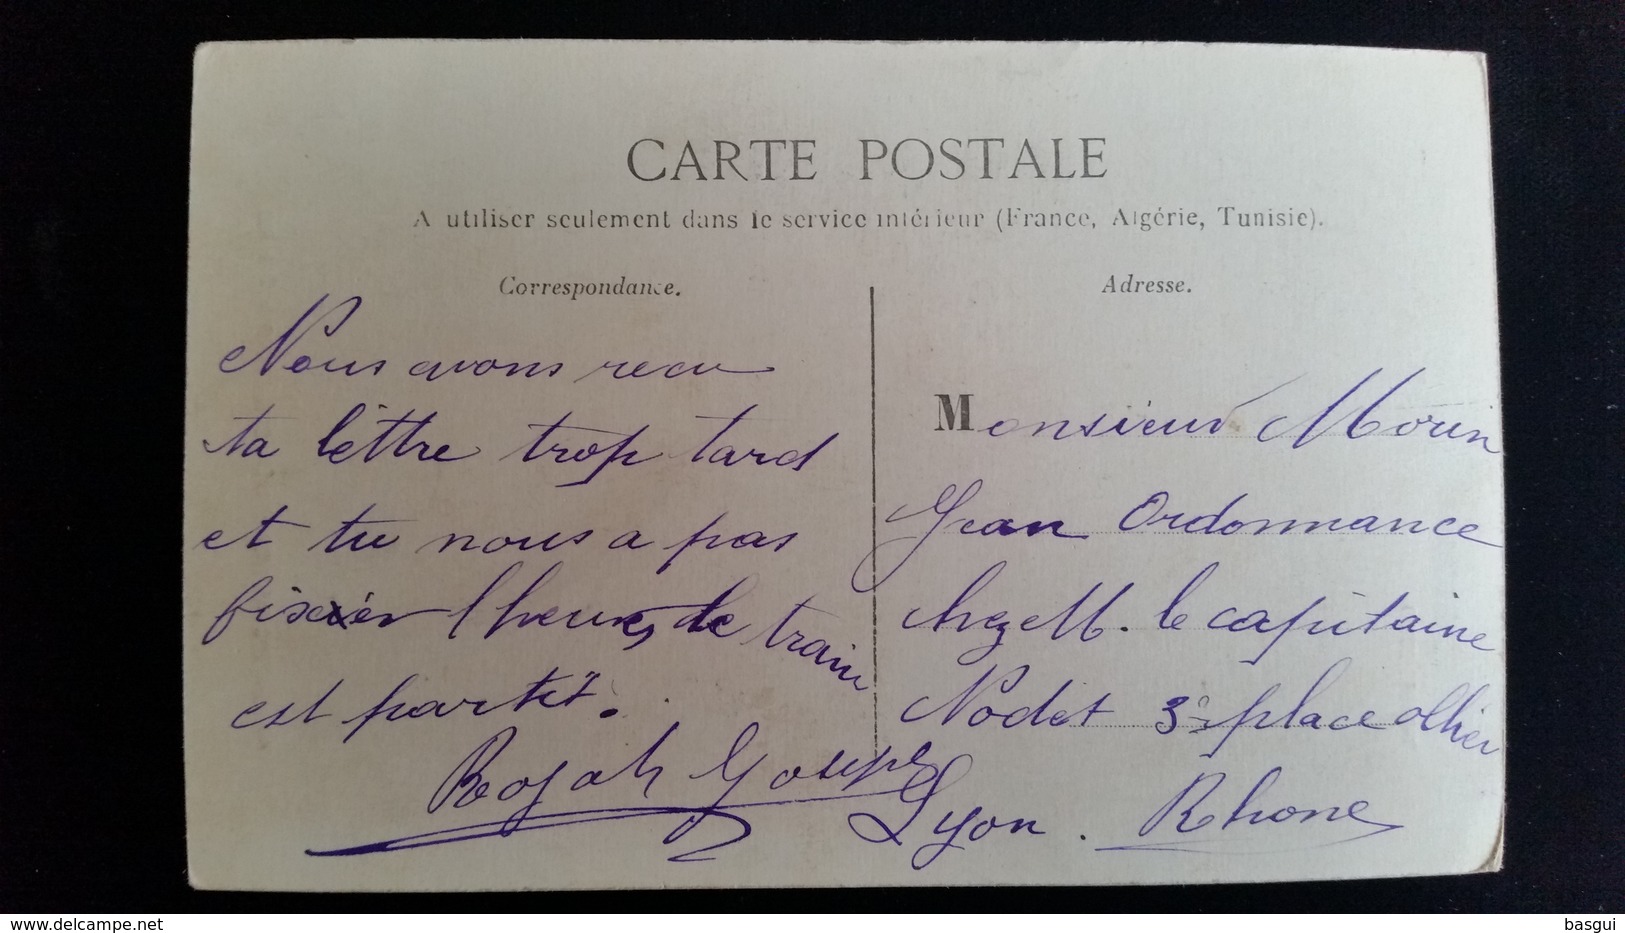 CARTE POSTALE
A utiliser seulement dans le service intérieur (France, Algérie, Tunisie).
Correspondance.
Nous avons recu
ta lettre trop tard
et tu nous a pas
fixer l heures de train
est partit.
Joseph
Adresse.
Monsieur Morin
Jean Ordonnance
chez M. le capitaine
Nodet 3 place ollier
Lyon. Rhone
delcampe.net
basgui